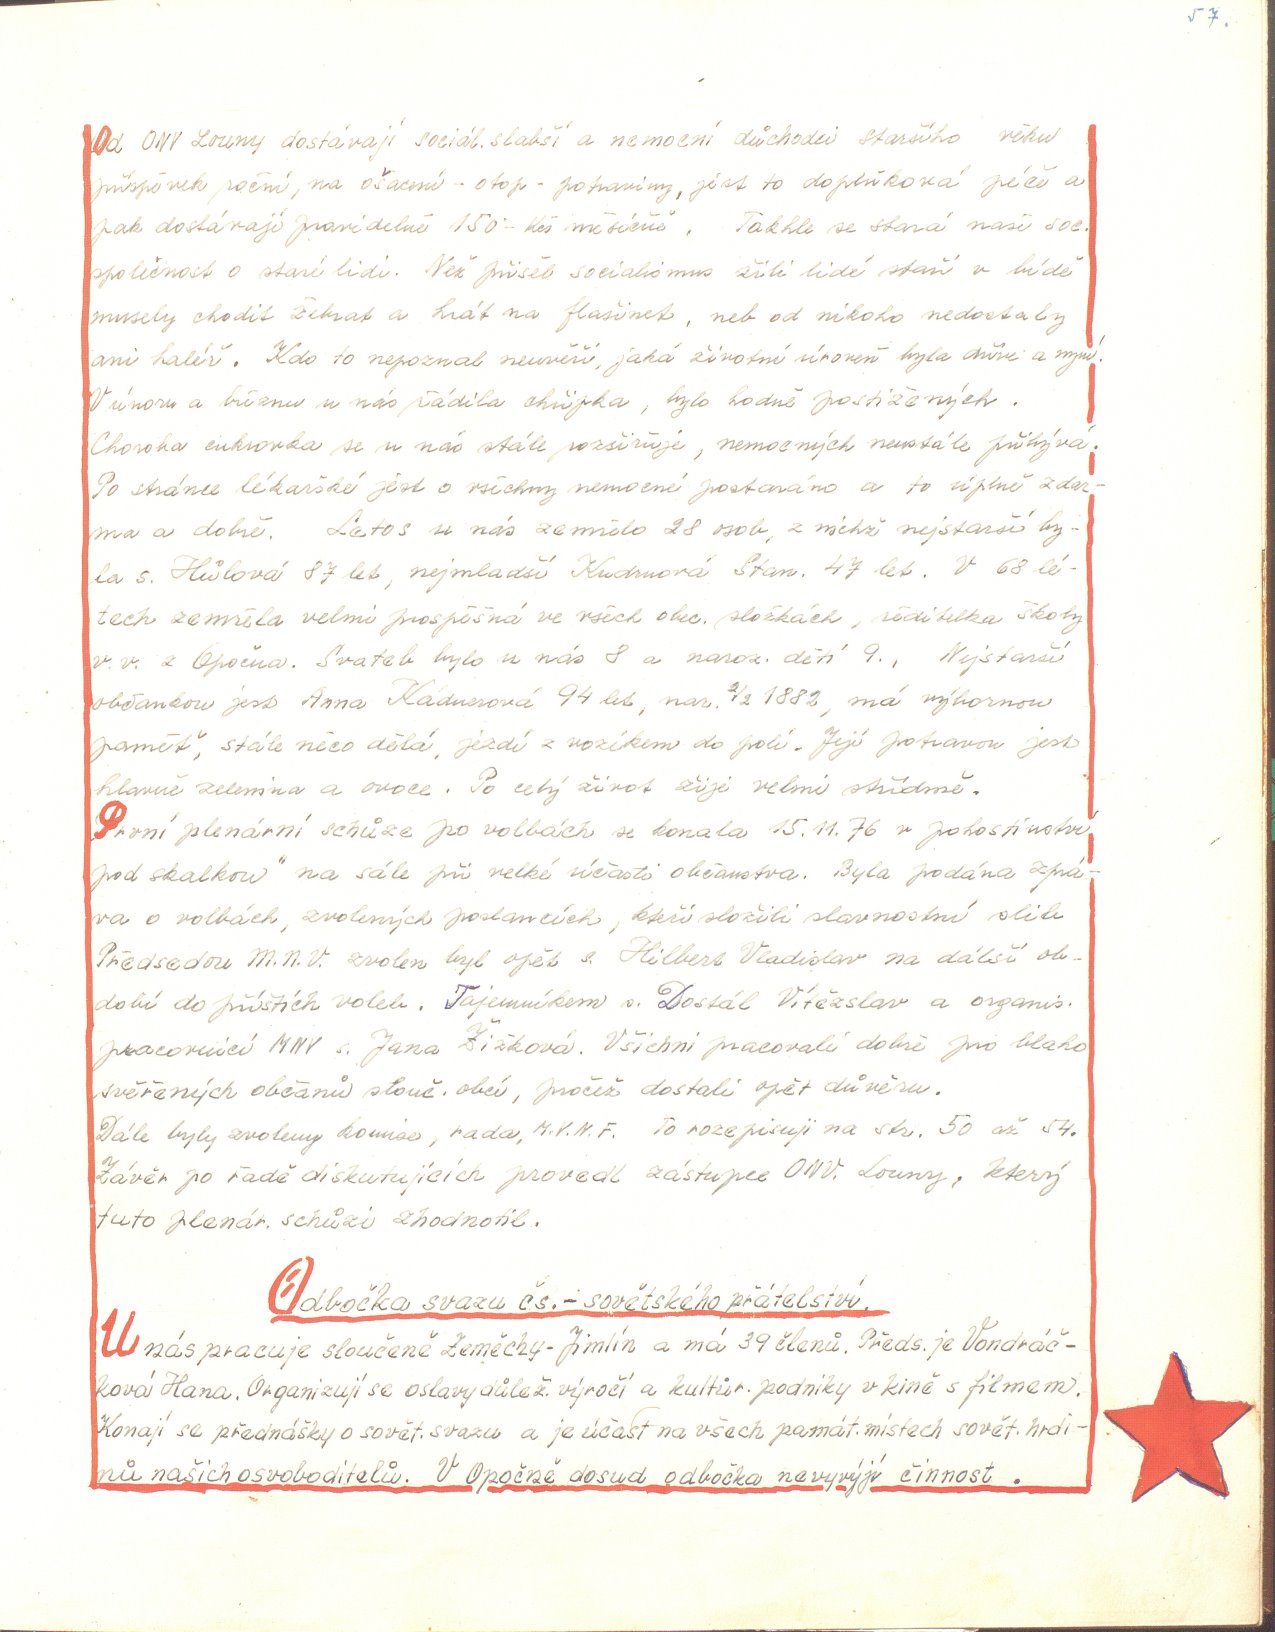 57.
Od ONV Louny dostávají sociál. slabší a nemocní důchodci staršího věku
příspěvek roční, na ošacení - otop - potraviny, jest to doplňková péče a
pak dostávají pravidelně 150 - Kčs měsíčně. Takhle se stará naše soc.
společnost o staré lidi. Než přišel socialismus žili lidé staří v bídě
musely chodit žebrat a hrát na flašinet, neb od nikoho nedostaly
ani haléř. Kdo to nepoznal neuvěří, jaká životní úroveň byla dříve a nyní.
V únoru a březnu u nás řádila chřipka, bylo hodně postižených.
Choroba cukrovka se u nás stále rozšiřuje, nemocných neustále přibývá.
Po stránce lékařské jest o všechny nemocné postaráno a to úplně zdar-
ma a dobře. Letos u nás zemřelo 28 osob, z nichž nejstarší by-
la s. Hůlová 87 let, nejmladší Kudrnová Stan. 47 let. V 68 lé-
tech zemřela velmi prospěšná ve všech obec. složkách, ředitelka školy
v. v. z Opočna. Svateb bylo u nás 8 a naroz. dětí 9., Nejstarší
občankou jest Anna Kádnerová 94 let, nar. 2/2 1882, má výbornou
paměť, stále něco dělá, jezdí z vozíkem do polí. Její potravou jest
hlavně zelenina a ovoce. Po celý život žije velmi střídmě.
První plenární schůze po volbách se konala 15.11.76 v pohostinství
pod skalkou" na sále při velké účasti občanstva. Byla podána zprá-
va o volbách, zvolených poslancích, kteří složili slavnostní slib
Předsedou M.N.V. zvolen byl opět s. Hilbert Vladislav na dálší ob-
dobí do příštích voleb. Tajemníkem s. Dostál Vítězslav a organis.
pracovnicí MNV s. Jana Žižková. Všichni pracovali dobře pro blaho
svěřených občanů slouč. obcí, pročež dostali opět důvěru.
Dále byly zvoleny komise, rada, M.V.N.F. To rozepisuji na str. 50 až 54.
Závěr po řadě diskutujících provedl zástupce ONV. Louny, který
tuto plenár. schůzi zhodnotil.
Odbočka svazu čs. - sovětského přátelství.
U nás pracuje sloučeně Zeměchy - Jimlín a má 39 členů. Předs. je Vondráč-
ková Hana. Organizují se oslavy důlež. výročí a kultůr. podniky v kině s filmem.
Konají se přednášky o sovět. svazu a je účast na všech památ. místech sovět. hrdi-
nů našich osvoboditelů. V Opočně dosud odbočka nevyvýjí činnost.